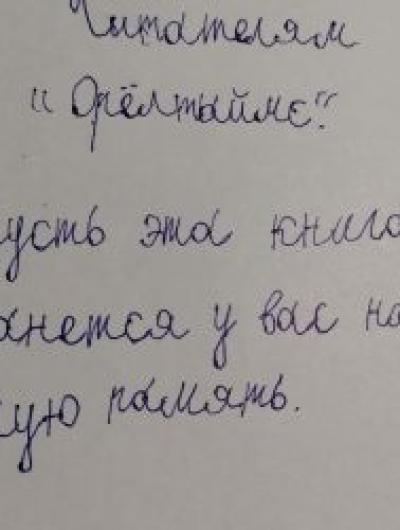 Читателям
"Орёлтайме".
усть эта книга
анется у вас на
ую память.